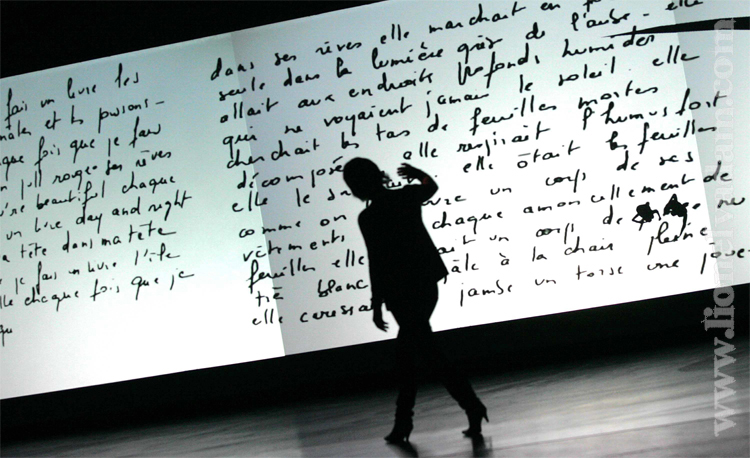 fais un livre les
et les poisons -
que fois que je fais
pull rouge. ses rêves
beautiful chaque
un livre day and night
a tête dans ma tête
je fais un livre l'île
elle chaque fois que je
qu
dans ses rêves elle marchait en
seule dans la lumière gris de l'aube - elle
allait aux endroits profonds humides
qui ne voyaient jamais le soleil elle
cherchait les tas de feuilles mortes
décomposé elle respirait l'humus fort
elle le elle ôtait les feuilles
comme on un corps de ses
vêtements chaque amoncellement de
feuilles elle ait un corps de nu
très blanc pâle à la chair pleine
elle caressait jambe un torse une joue
www.lionelvadam.com